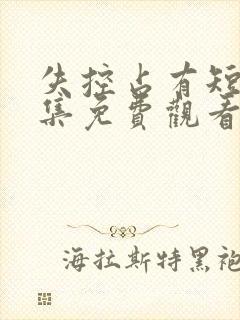 失控占有短
集免費觀看
海拉斯特黑袍